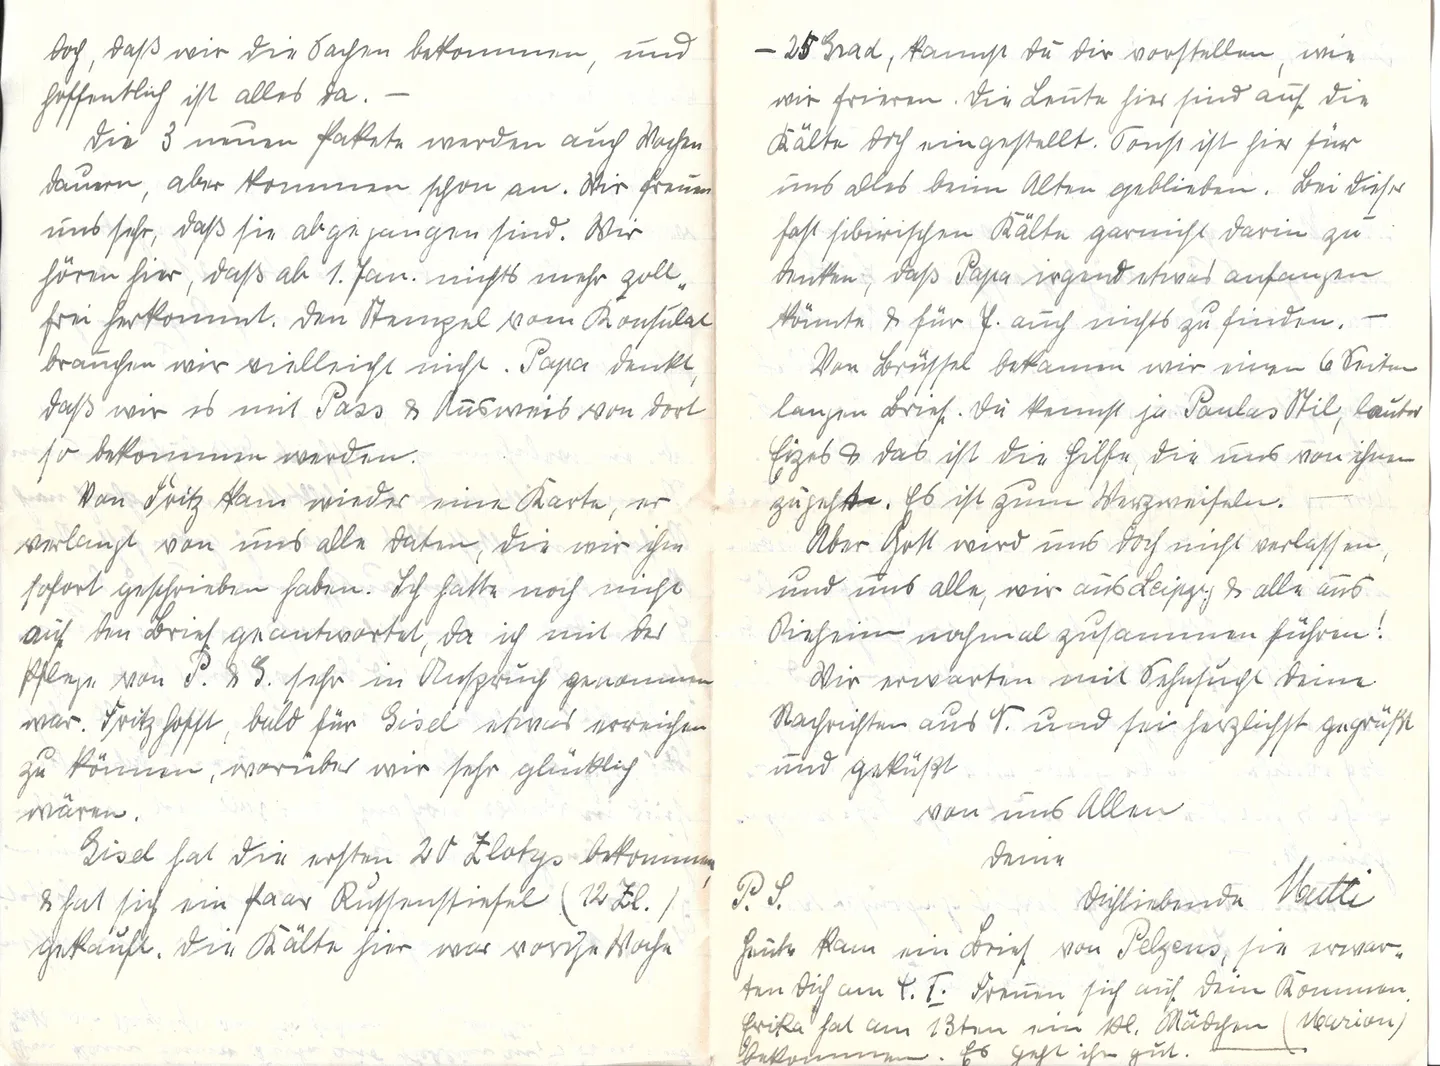 doch, daß wir die Sachen bekommen, und
hoffentlich ist alles da. —
Die 3 neuen Pakete werden auch Wochen
dauern, aber kommen schon an. Wir freuen
uns sehr, daß sie abgegangen sind. Wir
hören hier, daß ab 1. Jan. nichts mehr zoll-
frei herkommt. Den Stempel vom Konsulat
brauchen wir vielleicht nicht. Papa denkt,
daß wir es mit Pass & Ausweis von dort
so bekommen werden.
Von Fritz kam wieder eine Karte, er
verlangt von uns alle Daten, die wir ihm
sofort geschrieben haben. Ich hatte noch nicht
auf den Brief geantwortet, da ich mit der
Pflege von P. & G. sehr in Anspruch genommen
war. Fritz hofft, bald für Gisel etwas erreichen
zu können, worüber wir sehr glücklich
wären.
Gisel hat die ersten 20 Zlotys bekommen,
& hat sich ein paar Russenstiefel (12 Zl.)
gekauft. Die Kälte hier war vorige Woche
– 25 Grad, kannst Du Dir vorstellen, wie
wir frieren. Die Leute hier sind auf die
Kälte doch eingestellt. Sonst ist hier für
uns alles beim Alten geblieben. Bei dieser
fast sibirischen Kälte garnicht daran zu
denken, daß Papa irgend etwas anfangen
könnte & für J. auch nichts zu finden. —
Von Brüssel bekamen wir einen 6 Seiten
langen Brief. Du kennst ja Paulas Stil, lauter
Eizes & das ist die Hilfe, die uns von ihnen
zugeht. Es ist zum Verzweifeln. —
Aber Gott wird uns doch nicht verlassen,
und uns alle, wir aus Leipzig & alle aus
Rieheim nochmal zusammen führen!
Wir erwarten mit Sehnsucht Deine
Nachrichten aus N. und sei herzlichst gegrüßt
und geküßt
von uns Allen
Deine
Dichliebende Mutti
P. S.
Heute kam ein Brief von Pelzens, sie erwar-
ten Dich am I. Freuen sich auf Dein Kommen.
Erika hat am 13ten ein kl. Mädchen (Marion)
bekommen. Es geht ihr gut.